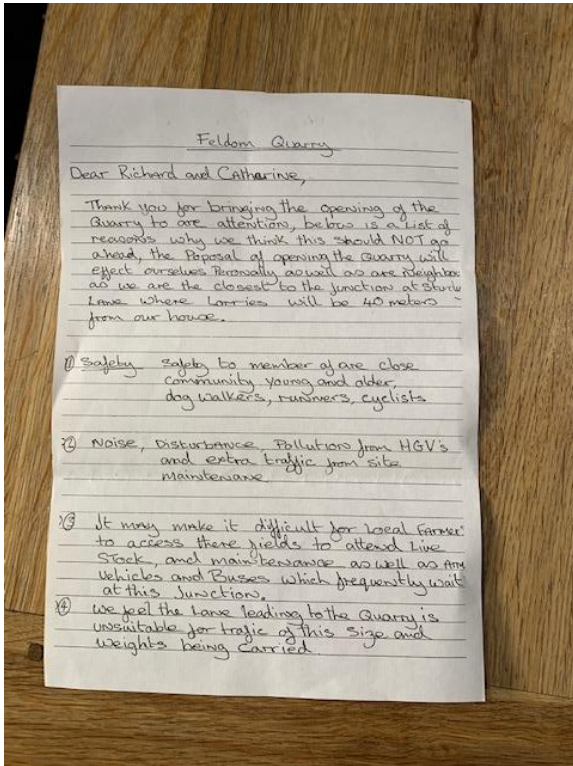 Feldom Quarry
Dear Richard and Catherine,
Thank you for bringing the opening of the
Quarry to are attention, below is a List of
reasons why we think this should NOT go
ahead, the Poposal of opening the Quarry will
effect ourselves Personally as well as are Neighbor
as we are the closest to the junction at
Lane where Lorries will be 40 meters
from our house.
① Safety Safety to member of are close
community young and older,
dog walkers, runners, cyclists
② Noise, Disturbance, Pollution from HGV's
and extra traffic from site
maintenance
③ It may make it difficult for Local Farmer
to access there fields to attend Live
Stock, and maintenance as well as
Vehicles and Buses which frequently wait
at this Junction.
④ we feel the Lane leading to the Quarry is
unsuitable for trafic of this size and
weights being Carried